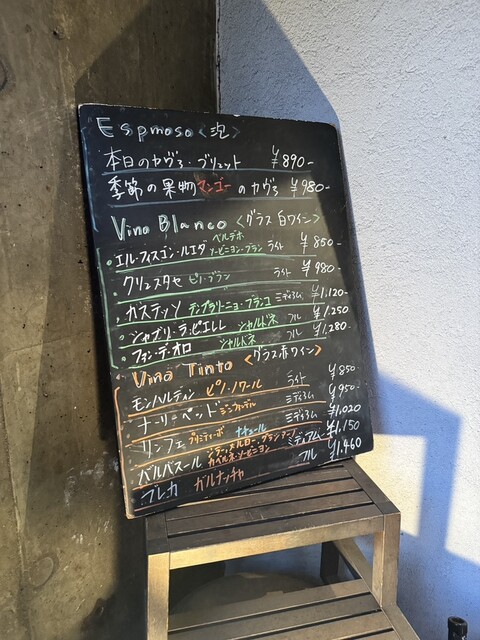 Espmoso〈泡〉
本日のカヴァ・ブリュット ¥890-
季節の果物マンゴーのカヴァ ¥980-
Vino Blanco〈グラス白ワイン〉
・エル・フィスゴン・ルエダ ベルデホ ソービニヨン・ブラン ライト ¥850-
・クリュスタセ ピノ・ブラン ライト ¥980-
・ガステッソ テンプラリーニョ・ブランコ ミディアム ¥1,120-
・シャブリ・ラ・ピエレレ シャルドネ フル ¥1,250
・ファン・デ・オロ シャルドネ フル ¥1,280-
Vino Tinto〈グラス赤ワイン〉
モンハルティン ピノ・ノワール ライト ¥850-
ナーリーヘッド ジンファンデル ミディアム ¥950-
リンフェ プリミティーボ ナチュール ミディアム ¥1,020
バルバスール シラー・メルロー・グラシアーノ カベルネ・ソービニヨン ミディアム ¥1,150
ブレカ ガルナッチャ フル ¥1,460